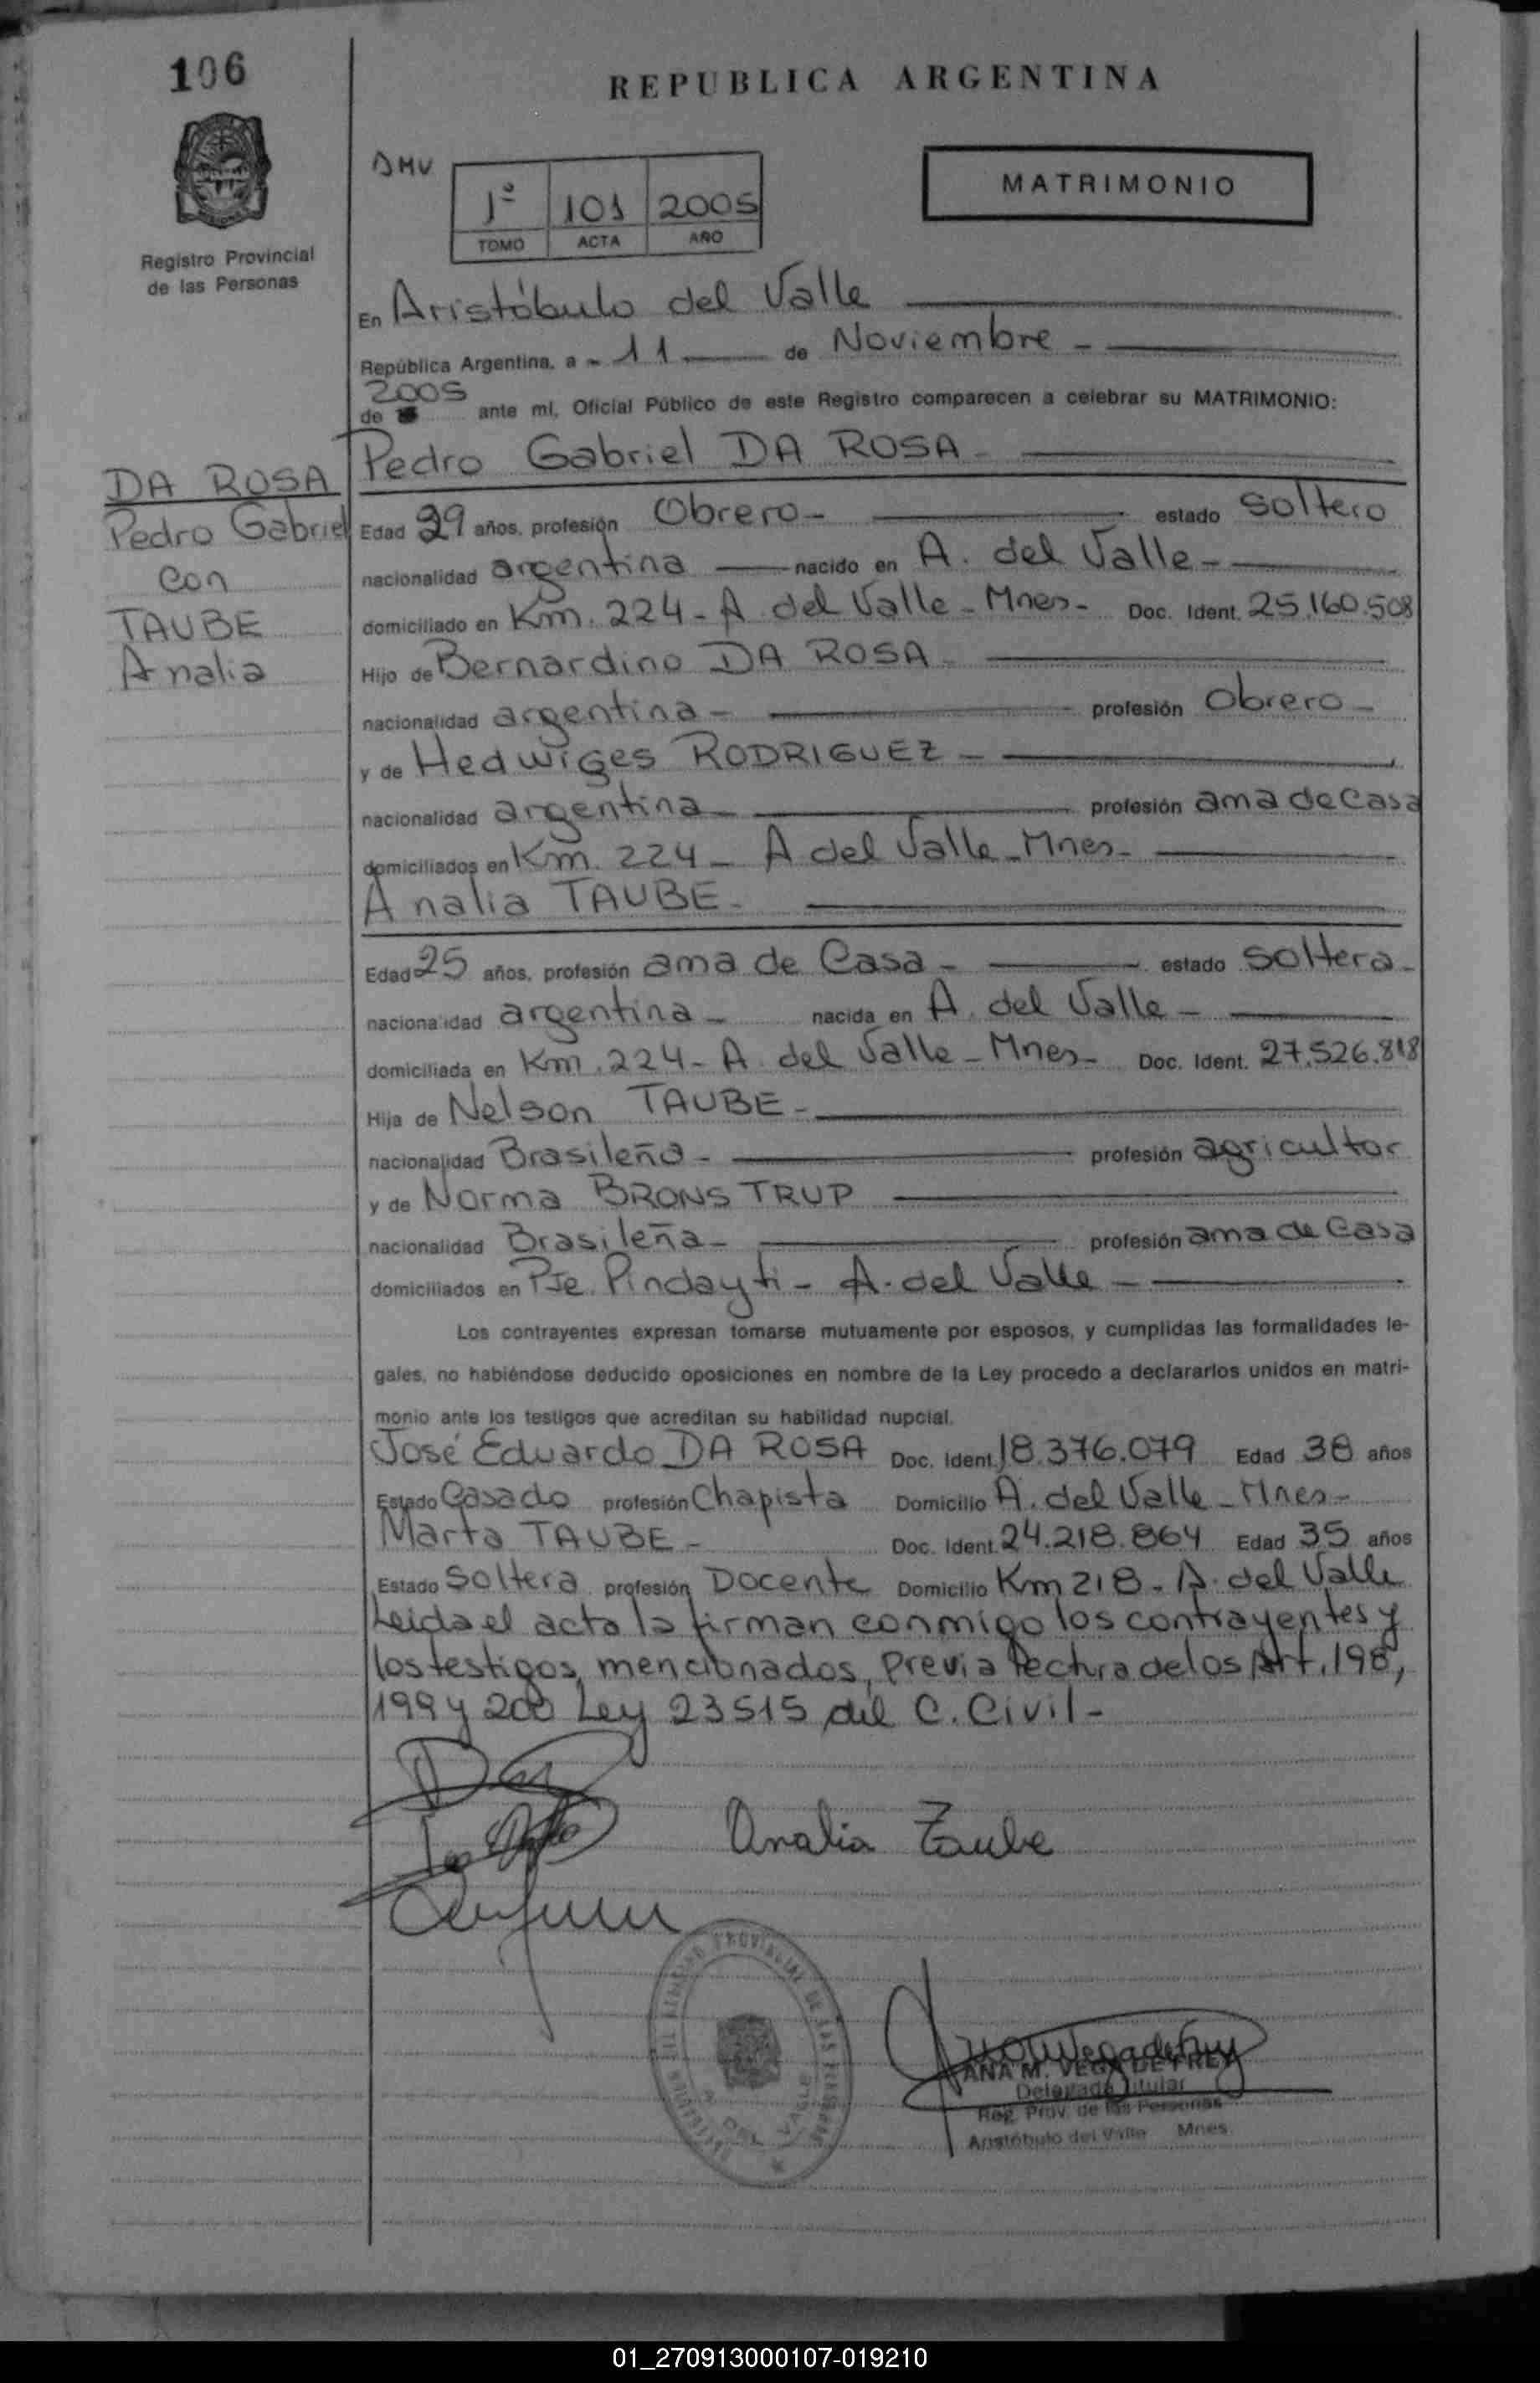 106
REPUBLICA ARGENTINA
DMV
1º 101 2005
TOMO ACTA AÑO
MATRIMONIO
Registro Provincial
de las Personas
En Aristóbulo del Valle
República Argentina, a - 11 de Noviembre -
2005
de ante mí, Oficial Público de este Registro comparecen a celebrar su MATRIMONIO:
Pedro Gabriel DA ROSA -
DA ROSA
Pedro Gabriel
con
TAUBE
Analia
Edad 29 años, profesión Obrero - estado soltero
nacionalidad argentina nacido en A. del Valle -
domiciliado en Km. 224 - A. del Valle - Mnes - Doc. Ident. 25.160.508
Hijo de Bernardino DA ROSA -
nacionalidad argentina - profesión Obrero -
y de Hedwiges RODRIGUEZ -
nacionalidad argentina - profesión ama de Casa
domiciliados en Km. 224 - A del Valle - Mnes -
Analia TAUBE -
Edad 25 años, profesión ama de Casa - estado soltera -
nacionalidad argentina - nacida en A. del Valle -
domiciliada en Km. 224 - A. del Valle - Mnes - Doc. Ident. 27.526.818
Hija de Nelson TAUBE -
nacionalidad Brasileño - profesión agricultor
y de Norma BRONSTRUP
nacionalidad Brasileña - profesión ama de Casa
domiciliados en Pje. Pindayti - A. del Valle -
Los contrayentes expresan tomarse mutuamente por esposos, y cumplidas las formalidades le-
gales, no habiéndose deducido oposiciones en nombre de la Ley procedo a declararlos unidos en matri-
monio ante los testigos que acreditan su habilidad nupcial.
José Eduardo DA ROSA Doc. Ident. 18.376.079 Edad 38 años
Estado Casado profesión Chapista Domicilio A. del Valle - Mnes -
Marta TAUBE - Doc. Ident. 24.218.864 Edad 35 años
Estado soltera profesión Docente Domicilio Km 218 - A. del Valle
Leida el acta la firman conmigo los contrayentes y
los testigos mencionados, previa lectura de los Art. 198,
199 y 200 Ley 23515 del C. Civil -
Analia Taube
PROVINCIAL DE LAS PERSONAS
A. DEL VALLE
ANA M. VEGA DE FREY
Delegada Titular
Reg. Prov. de las Personas
Aristóbulo del Valle Mnes.
01_270913000107-019210